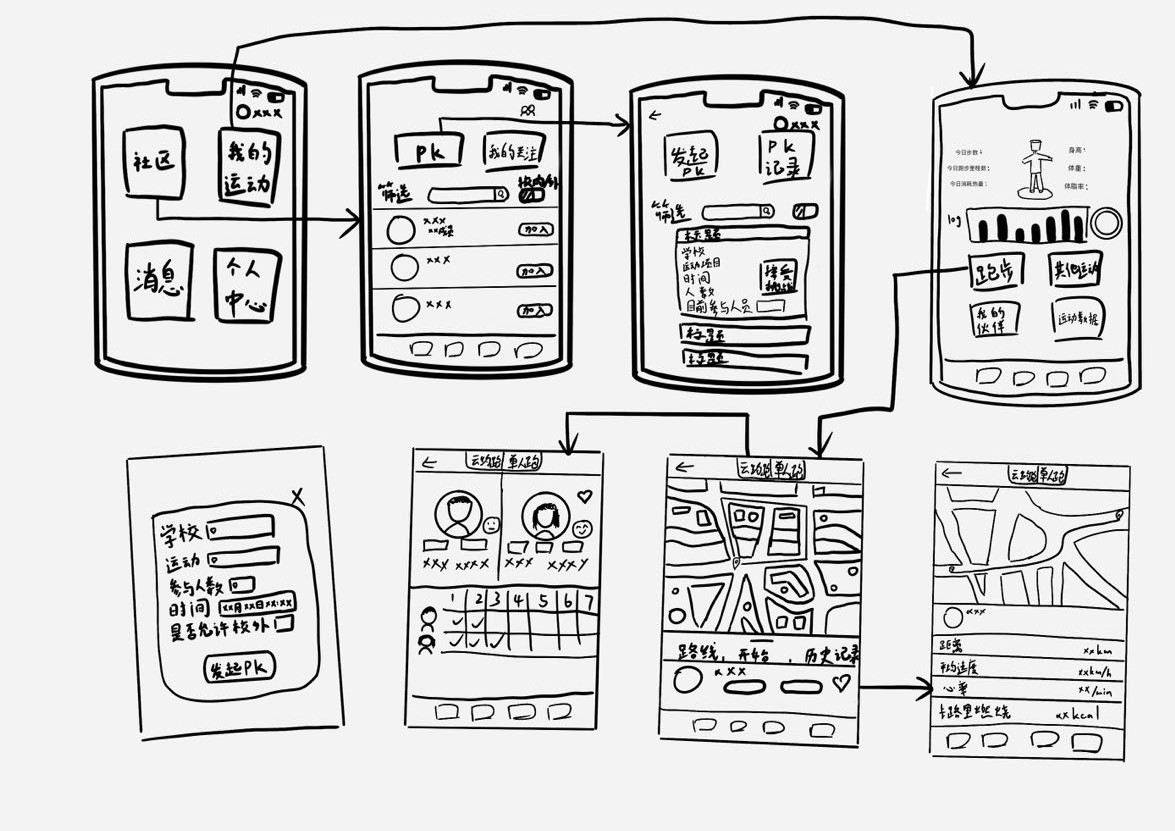 xxx
社区
我的
运动
消息
个人
中心
PK
我的关注
筛选
校内/外
xxx
xx成员
加入
xxx
加入
xxx
加入
xxx
发起
PK
PK
记录
筛选
标题
学校
运动项目
时间
人数
目前参与人员
接受
挑战
标题
标题
今日步数：
今日跑步里程数：
今日消耗热量：
身高：
体重：
体脂率：
log
跑步
其他运动
我的
伙伴
运动数据
X
学校
运动
参与人数
时间
xx月xx日xx:xx
是否允许校外
发起PK
云跑 单人跑
xxx xxxx
xxx xxxy
1 2 3 4 5 6 7
单人跑
路线, 开始, 历史记录
xxx
单人跑
xxx
距离 xxkm
平均速度 xxkm/h
心率 xx/min
卡路里燃烧 xxkcal